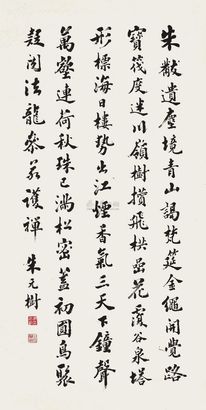 朱黻遺塵境青山謁梵筵金繩開覺路
寶筏度迷川嶺樹攢飛栱嵒花覆谷泉塔
形標海日樓勢出江煙香氣三天下鐘聲
萬壑連荷秋珠已滿松密蓋初圓鳥聚
疑聞法龍參若護禪 朱元樹